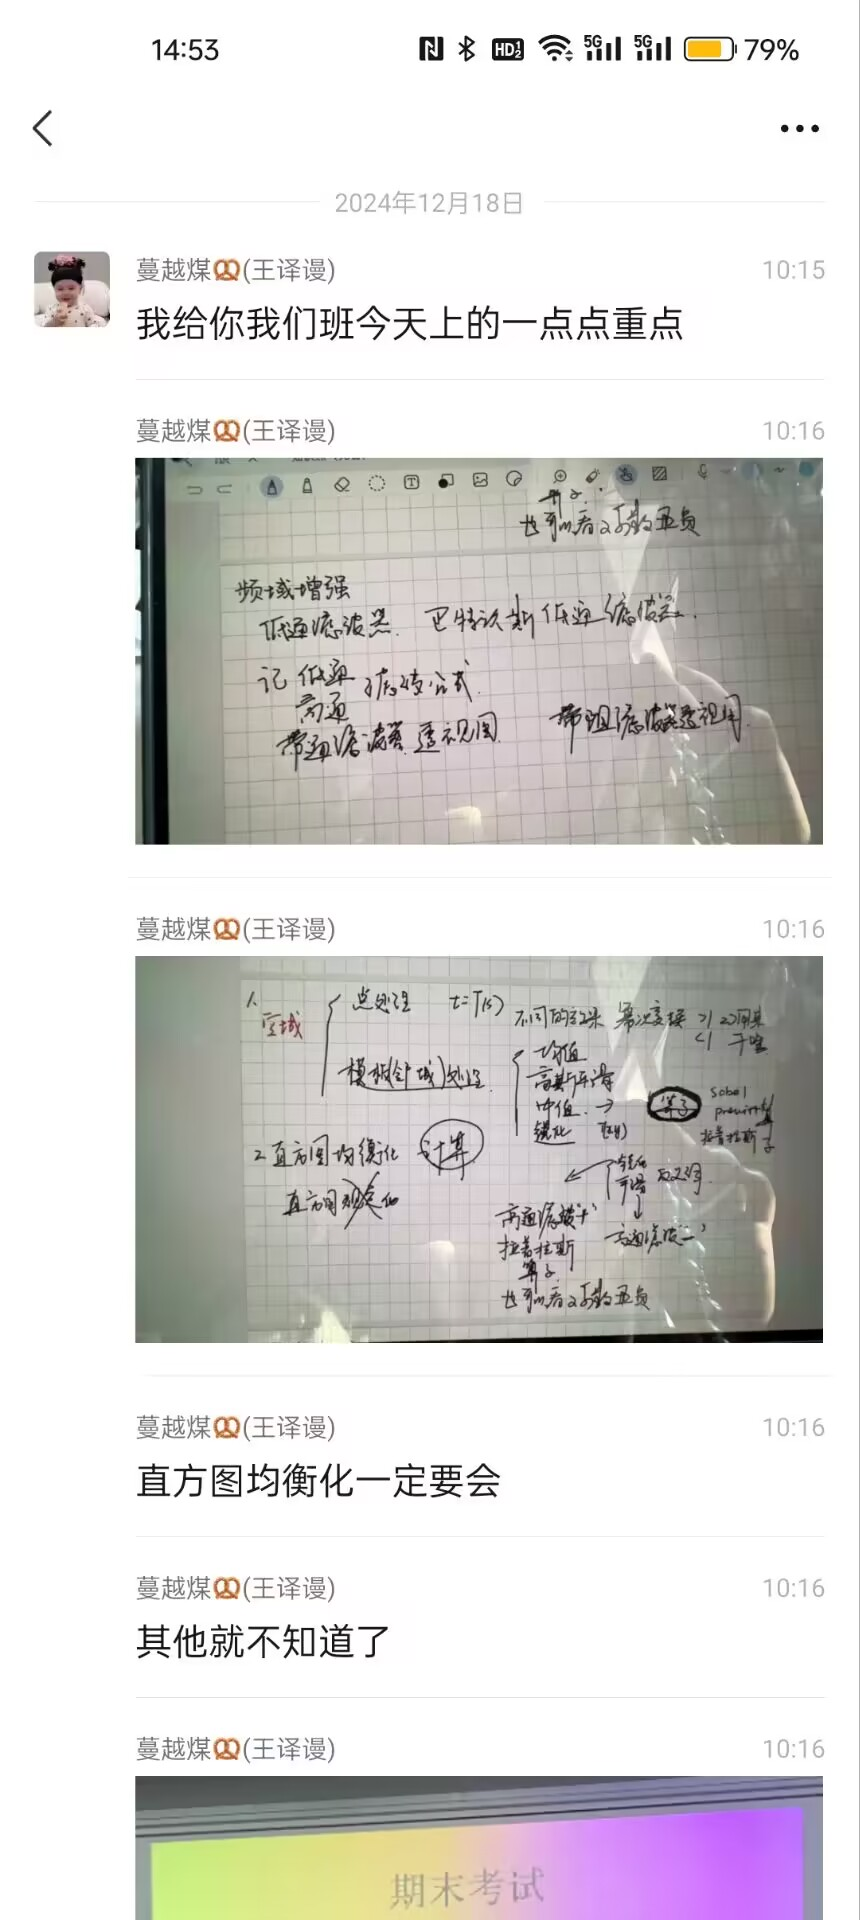 14:53
HD 1 2
5G
5G
79%
2024年12月18日
蔓越煤🥨(王译谩)
10:15
我给你我们班今天上的一点点重点
蔓越煤🥨(王译谩)
10:16
也可以看 系数正负
频域增强
低通滤波器. 巴特沃斯低通滤波器.
记 低通
高通
滤波公式.
带通滤波器透视图 带阻滤波器透视图.
蔓越煤🥨(王译谩)
10:16
1.
空域
点处理 t=T(s)
不同的效果 幂次变换 >1 用来
<1 干嘛
模板(邻域)处理.
均值
高斯平滑
中值 →
锐化
算子
Sobel
prewitt
拉普拉斯
2.直方图均衡化 计算
平滑
高通滤波
拉普拉斯
算子.
也可以看 系数正负
蔓越煤🥨(王译谩)
10:16
直方图均衡化一定要会
蔓越煤🥨(王译谩)
10:16
其他就不知道了
蔓越煤🥨(王译谩)
10:16
期末考试